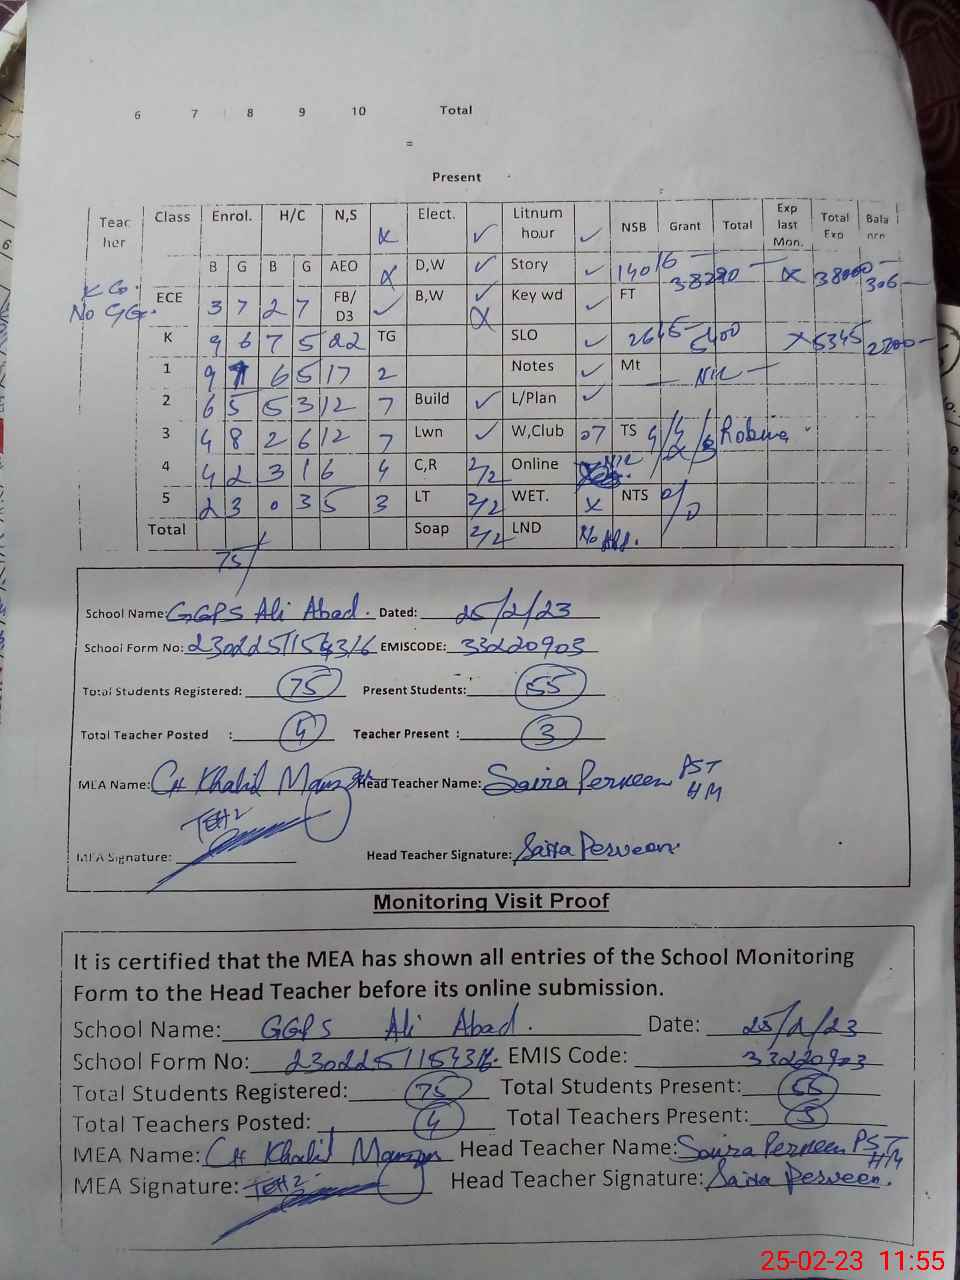 6 7 8 9 10 Total
=
Present
Teac her Class Enrol. H/C N,S Elect. ✓ Litnum hour ✓ NSB Grant Total Exp last Mon. Total Exp Bala
B G B G AEO D,W ✓ Story ✓ 14016 38290 x 38000 306
ECE 3 7 2 7 FB/ D3 ✓ B,W ✓ Key wd ✓ FT
K 9 6 7 5 22 TG SLO ✓ 2645 5400 x 5345 2700
1 9 6 5 17 2 Notes ✓ Mt Nil
2 6 5 5 3 12 7 Build ✓ L/Plan ✓
3 4 8 2 6 12 7 Lwn ✓ W,Club 07 TS Robina
4 4 2 3 1 6 4 C,R 2/2 Online Nil
5 2 3 0 3 5 3 LT 2/2 WET. x NTS 0/0
Total Soap 2/2 LND No
75/
School Name: GGPS Ali Abad. Dated: 25/2/23
School Form No: EMISCODE: 33220903
Total Students Registered: 75 Present Students: 55
Total Teacher Posted : 4 Teacher Present : 3
MEA Name: Ch Khalid Head Teacher Name: Saira Perveen PST HM
TEH2
MEA Signature: Head Teacher Signature: Saira Perveen.
Monitoring Visit Proof
It is certified that the MEA has shown all entries of the School Monitoring
Form to the Head Teacher before its online submission.
School Name: GGPS Ali Abad. Date: 25/2/23
School Form No: 2302251154316. EMIS Code: 33220903
Total Students Registered: 75 Total Students Present: 55
Total Teachers Posted: 4 Total Teachers Present: 3
MEA Name: Ch Khalid Head Teacher Name: Saira Perveen PST HM
MEA Signature: TEH2 Head Teacher Signature: Saira Perveen.
25-02-23 11:55